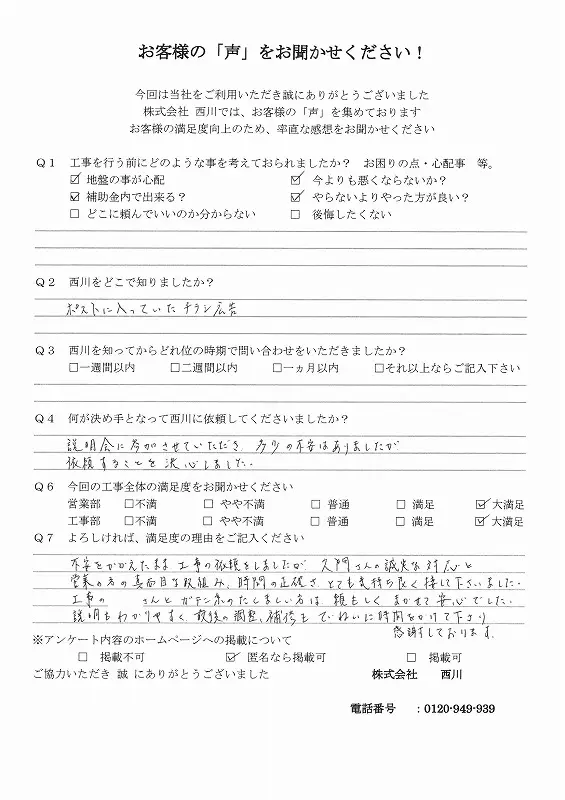 お客様の「声」をお聞かせください！
今回は当社をご利用いただき誠にありがとうございました
株式会社 西川では、お客様の「声」を集めております
お客様の満足度向上のため、率直な感想をお聞かせください
Q1 工事を行う前にどのような事を考えておられましたか？ お困りの点・心配事 等。
☑ 地盤の事が心配 ☑ 今よりも悪くならないか？
☑ 補助金内で出来る？ ☑ やらないよりやった方が良い？
□ どこに頼んでいいのか分からない □ 後悔したくない
Q2 西川をどこで知りましたか？
ポストに入っていた チラシ広告
Q3 西川を知ってからどれ位の時期で問い合わせをいただきましたか？
□一週間以内 □二週間以内 □一ヵ月以内 □それ以上ならご記入下さい
Q4 何が決め手となって西川に依頼してくださいましたか？
説明会に参加させていただき、多少の不安はありましたが
依頼することを決心しました。
Q6 今回の工事全体の満足度をお聞かせください
営業部 □不満 □ やや不満 □ 普通 □ 満足 ☑大満足
工事部 □不満 □ やや不満 □ 普通 □ 満足 ☑大満足
Q7 よろしければ、満足度の理由をご記入ください
不安をかかえたまま工事の依頼をしましたが 久門さんの誠実な対応と
営業の方の真面目な取組み、時間の正確さ、とても気持ち良く接して下さいました。
工事の さんと ガテン系のたくましい方は 頼もしく まかせて安心でした。
説明もわかりやすく、最後の調整、補修も ていねいに時間をかけて下さり
感謝しております。
※アンケート内容のホームページへの掲載について
□ 掲載不可 ☑ 匿名なら掲載可 □ 掲載可
ご協力いただき 誠 にありがとうございました 株式会社 西川
電話番号 ：0120-949-939